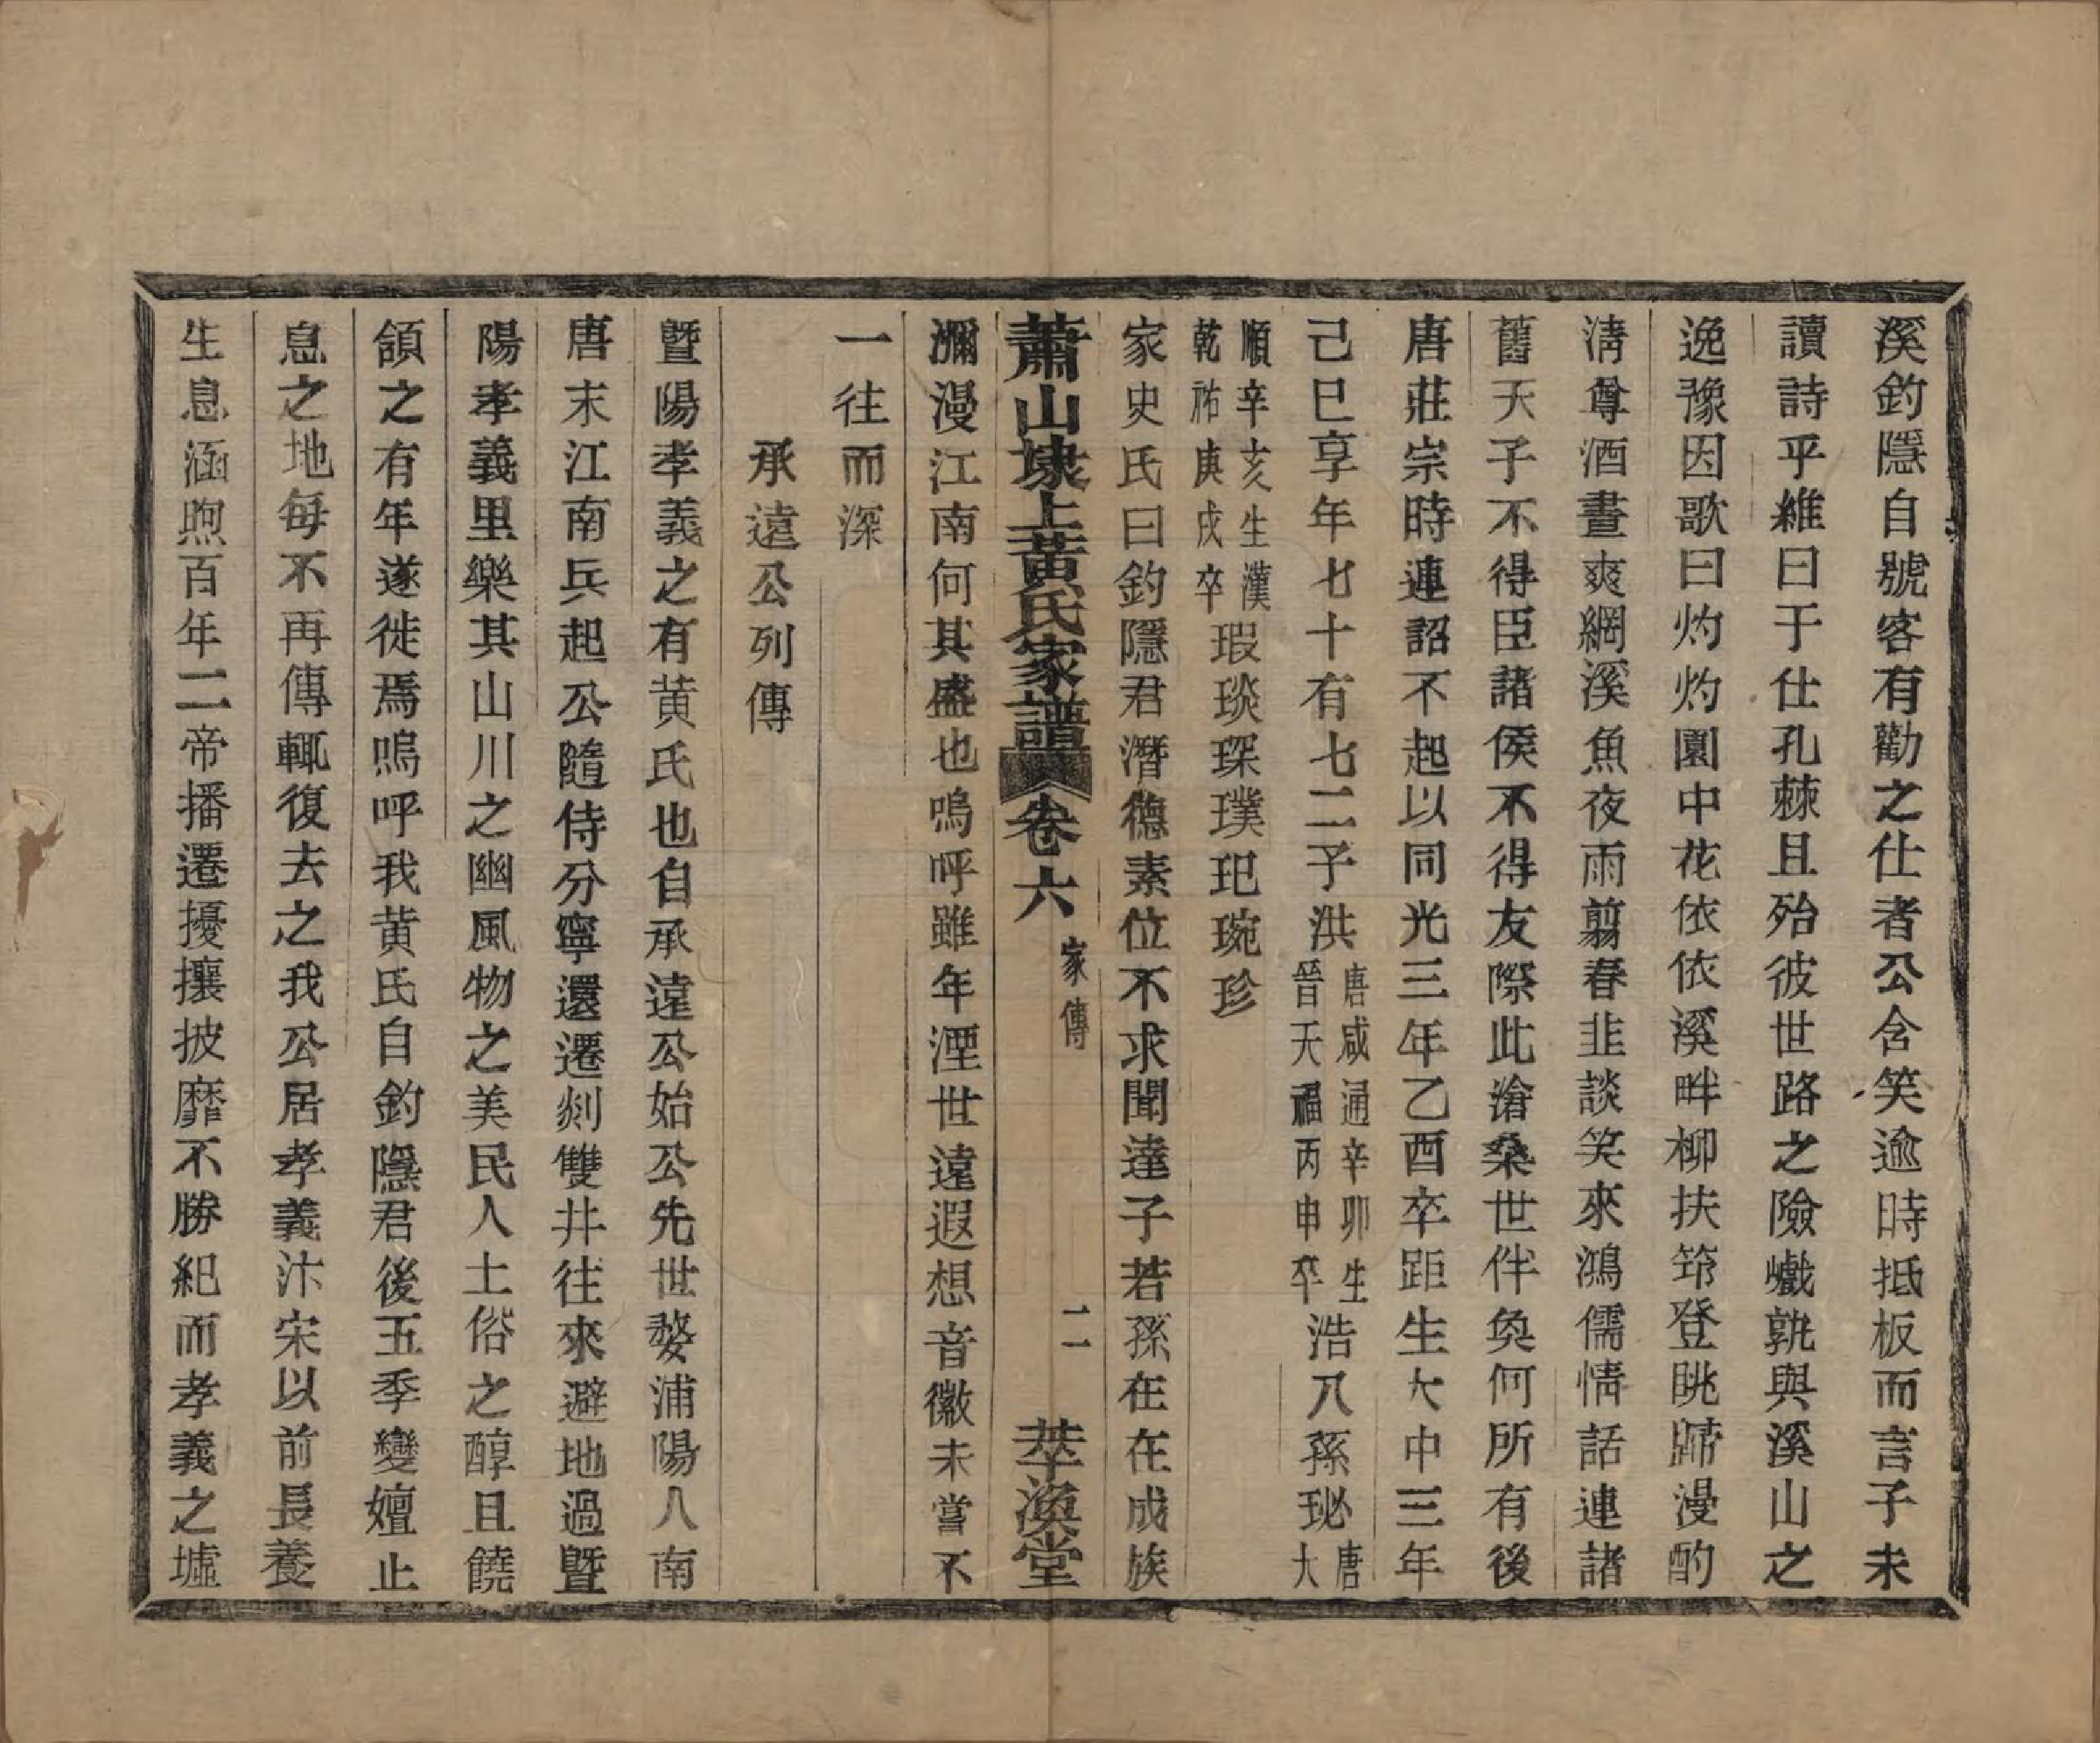 溪釣隱自號客有勸之仕者公含笑逾時抵板而言子未
讀詩乎維曰于仕孔棘且殆彼世路之險巇孰與溪山之
逸豫因歌曰灼灼園中花依依溪畔柳扶筇登眺歸漫酌
清尊酒晝爽網溪魚夜雨翦春韭談笑來鴻儒情話連諸
舊天子不得臣諸侯不得友際此滄桑世伴奐何所有後
唐莊宗時連詔不起以同光三年乙酉卒距生大中三年
己巳享年七十有七二子洪唐咸通辛卯生晉天福丙申卒浩八孫珌唐大
順辛亥生漢乾祐庚戌卒瑕琰琛璞玘琬珍
家史氏曰釣隱君潛德素位不求聞達子若孫在在成族
蕭山埭上黃氏家譜 卷六 家傳 二 萃渙堂
瀰漫江南何其盛也嗚呼雖年湮世遠遐想音徽未嘗不
一往而深
承遠公列傳
暨陽孝義之有黃氏也自承遠公始公先世婺浦陽人南
唐末江南兵起公隨侍分寧還遷剡雙井往來避地過暨
陽孝義里樂其山川之幽風物之美民人土俗之醇且饒
頷之有年遂徙焉嗚呼我黃氏自釣隱君後五季變嬗止
息之地每不再傳輒復去之我公居孝義汴宋以前長養
生息涵煦百年二帝播遷擾攘披靡不勝紀而孝義之墟